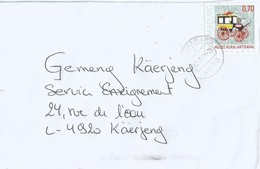 0,70
MUSEE RURAL ARTISANAL
Gemeng Käerjeng
Service Enseignement
24, rue de l'eau
L-4920 Käerjeng